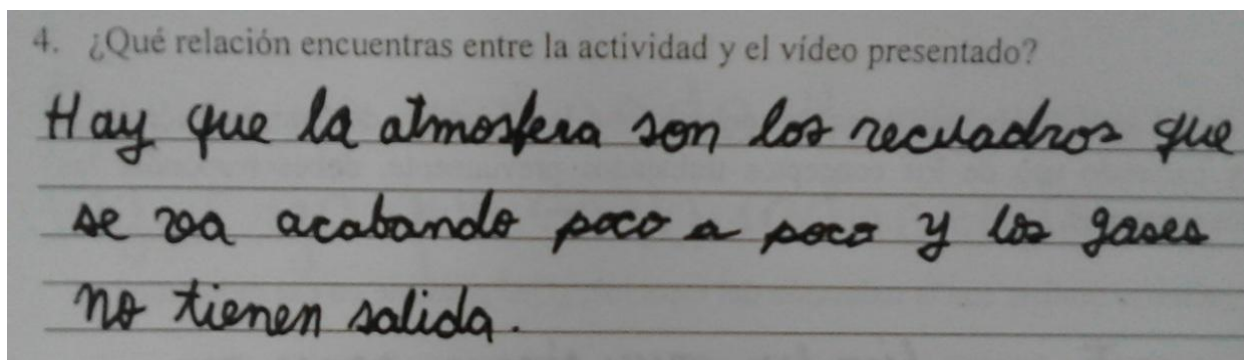 4. ¿Qué relación encuentras entre la actividad y el vídeo presentado?
Hay que la atmosfera son los recuadros que
se va acabando poco a poco y los gases
no tienen salida.